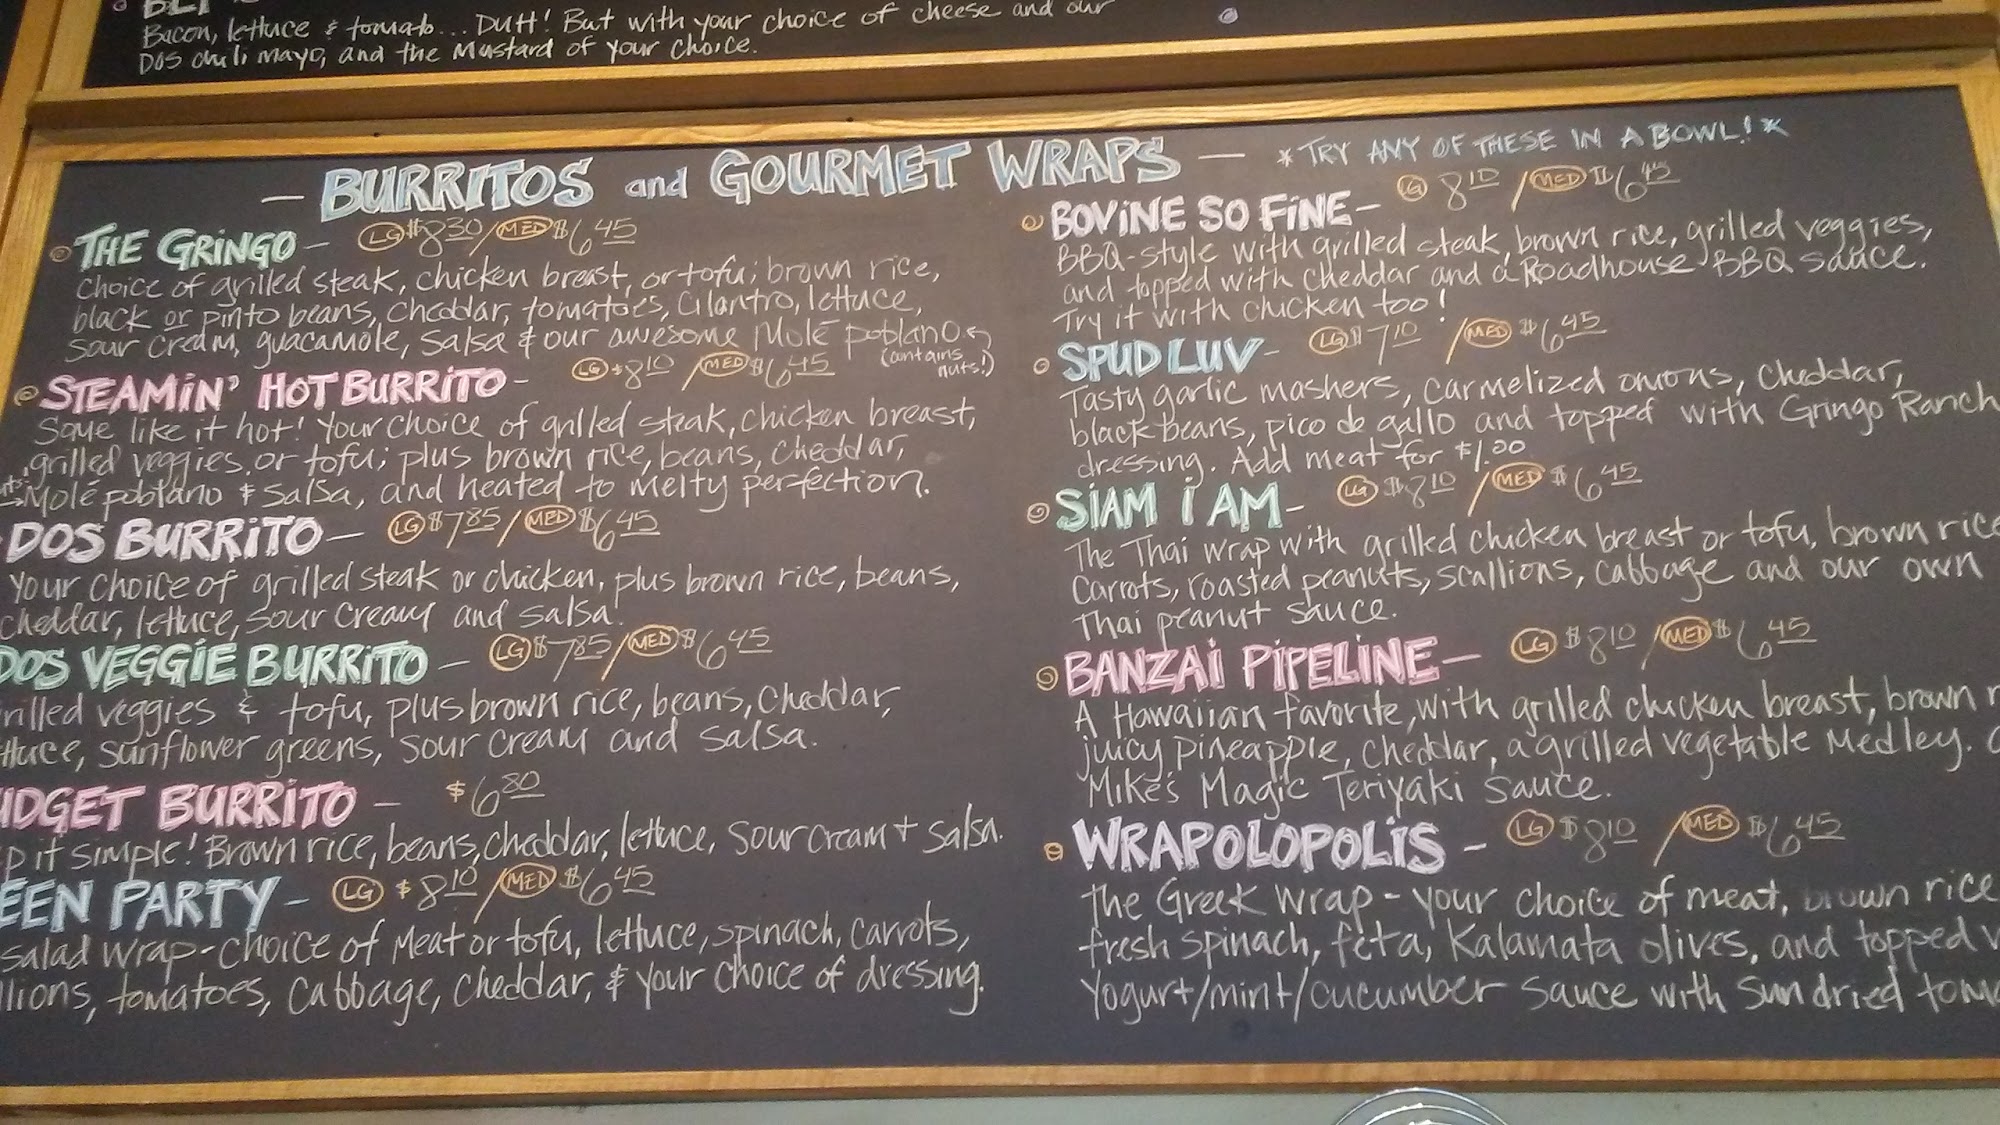 Bacon, lettuce & tomato... Duh! But with your choice of cheese and our
Dos chili mayo, and the Mustard of your choice.
— BURRITOS and GOURMET WRAPS — *TRY ANY OF THESE IN A BOWL!*
THE GRINGO - LG $8.30/MED $6.45
choice of grilled steak, chicken breast, or tofu; brown rice,
black or pinto beans, cheddar, tomatoes, cilantro, lettuce,
sour cream, guacamole, salsa & our awesome Molé poblano
(contains nuts!)
STEAMIN' HOT BURRITO - LG $8.10/MED $6.45
Some like it hot! Your choice of grilled steak, chicken breast,
grilled veggies, or tofu; plus brown rice, beans, cheddar,
Molé poblano & salsa, and heated to melty perfection.
DOS BURRITO - LG $7.85/MED $6.45
Your choice of grilled steak or chicken, plus brown rice, beans,
cheddar, lettuce, sour cream and salsa.
DOS VEGGIE BURRITO - LG $7.85/MED $6.45
rilled veggies & tofu, plus brown rice, beans, cheddar,
ttuce, sunflower greens, sour cream and salsa.
UDGET BURRITO - $6.80
p it simple! Brown rice, beans, cheddar, lettuce, sour cream + salsa.
EEN PARTY - LG $8.10/MED $6.45
salad wrap - choice of meat or tofu, lettuce, spinach, carrots,
llions, tomatoes, cabbage, cheddar, & your choice of dressing.
BOVINE SO FINE - LG 8.10/MED $6.45
BBQ-style with grilled steak, brown rice, grilled veggies,
and topped with cheddar and a Roadhouse BBQ sauce.
Try it with chicken too!
SPUD LUV - LG $7.10/MED $6.45
Tasty garlic mashers, carmelized onions, cheddar,
black beans, pico de gallo and topped with Gringo Ranch
dressing. Add meat for $1.00
SIAM I AM - LG $8.10/MED $6.45
The Thai wrap with grilled chicken breast or tofu, brown rice
carrots, roasted peanuts, scallions, cabbage and our own
Thai peanut sauce.
BANZAI PIPELINE - LG $8.10/MED $6.45
A Hawaiian favorite, with grilled chicken breast, brown r
juicy pineapple, cheddar, a grilled vegetable medley.
Mike's Magic Teriyaki sauce.
WRAPOLOPOLIS - LG $8.10/MED $6.45
The Greek wrap - your choice of meat, brown rice
fresh spinach, feta, Kalamata olives, and topped w
Yogurt/mint/cucumber sauce with sun dried toma